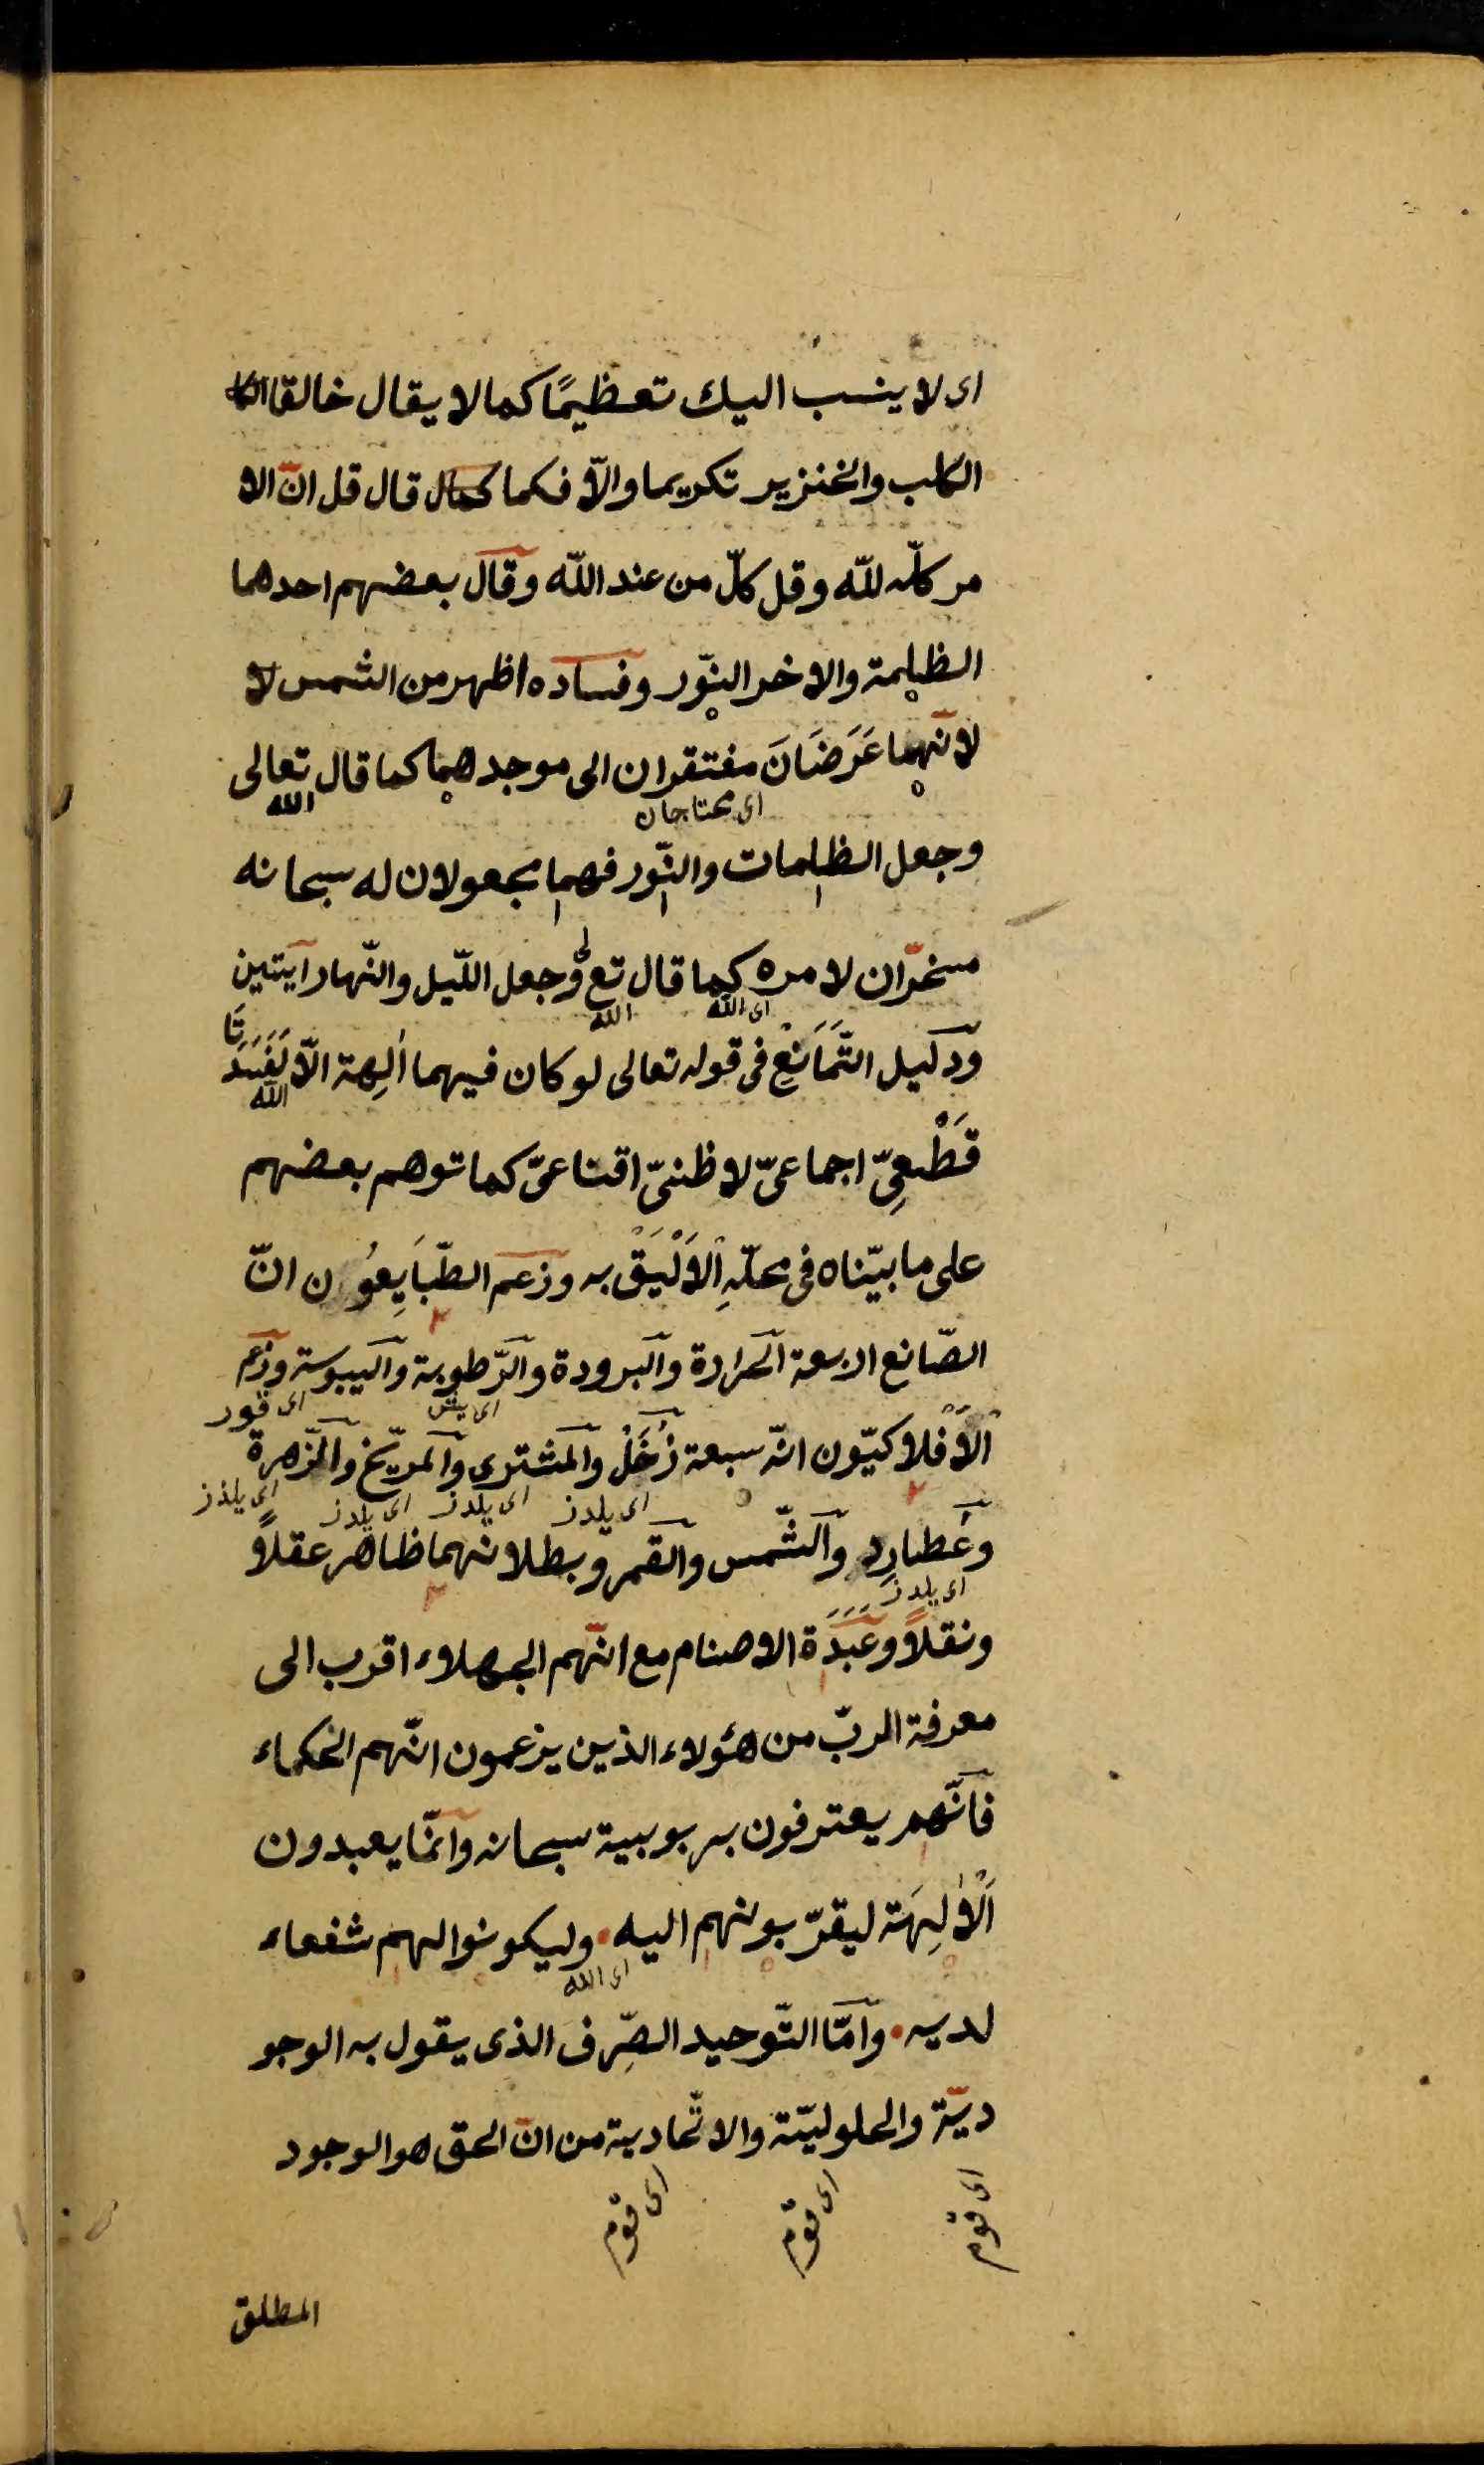 اى لا ينسب اليك تعظيمًا كما لا يقال خالق
الكلب والخنزير تكريما والاّ فكما كمال قال قل انّ الا
مر كلّه للّه وقل كلّ من عند اللّه وقال بعضهم احدهما
الظلمة والاخر النّور وفساده اظهر من الشمس لا
لانّهما عَرَضَانَ مفتقران الى موجدهما كما قال تعالى
اى محتاجان الله
وجعل الظلمات والنّور فهما مجعولان له سبحانه
مسخرّان لامره كما قال تعالى وجعل اللّيل والنّهار آيتين
اى الله الله
ودليل التَّمَانَعِ فى قوله تعالى لو كان فيهما اٰلِهة الاّ الله لَفَسَدَتَا
قَطْعِىّ اجماعىّ لا ظنىّ اقناعىّ كما توهم بعضهم
على ما بيّناه فى محلّهِ اْلاَلْيَقْ به وزعم الطّبَايِعُون انّ
الصّانع اربعة الحرارة والبرودة والرّطوبة واليبوسة وزعم
اى يش اى قور
اْلاَفْلاكيّون انّه سبعة زُحَلْ والمشترى والمرّيخ والزّهرة
اى يلدز اى يلدز اى يلدز اى يلدز
وعُطارِد والشّمس والقمر وبطلانهما ظاهر عقلاً
اى يلدز
ونقلاً وعَبَدَة الاصنام مع انّهم الجهلاء اقرب الى
معرفة الربّ من هؤلاء الذين يزعمون انّهم الحكماء
فانّهم يعترفون بربوبية سبحانه وانّما يعبدون
اْلاٰلِهَة ليقرّبونهم اليه • وليكونوا لهم شفعاء
اى الله
لديه • وامّا التّوحيد الصِّرف الذى يقول به الوجو
ديّة والحلوليّة والاتّحادية من انّ الحق هو الوجود
اى قوم اى قوم اى قوم
المطلق